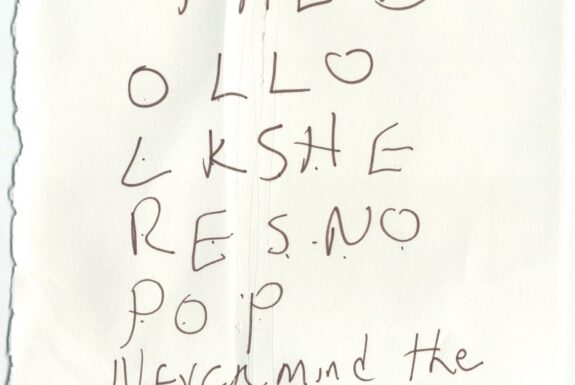 O L L O
C K S H E
R E S . N O
P O P
Never mind the